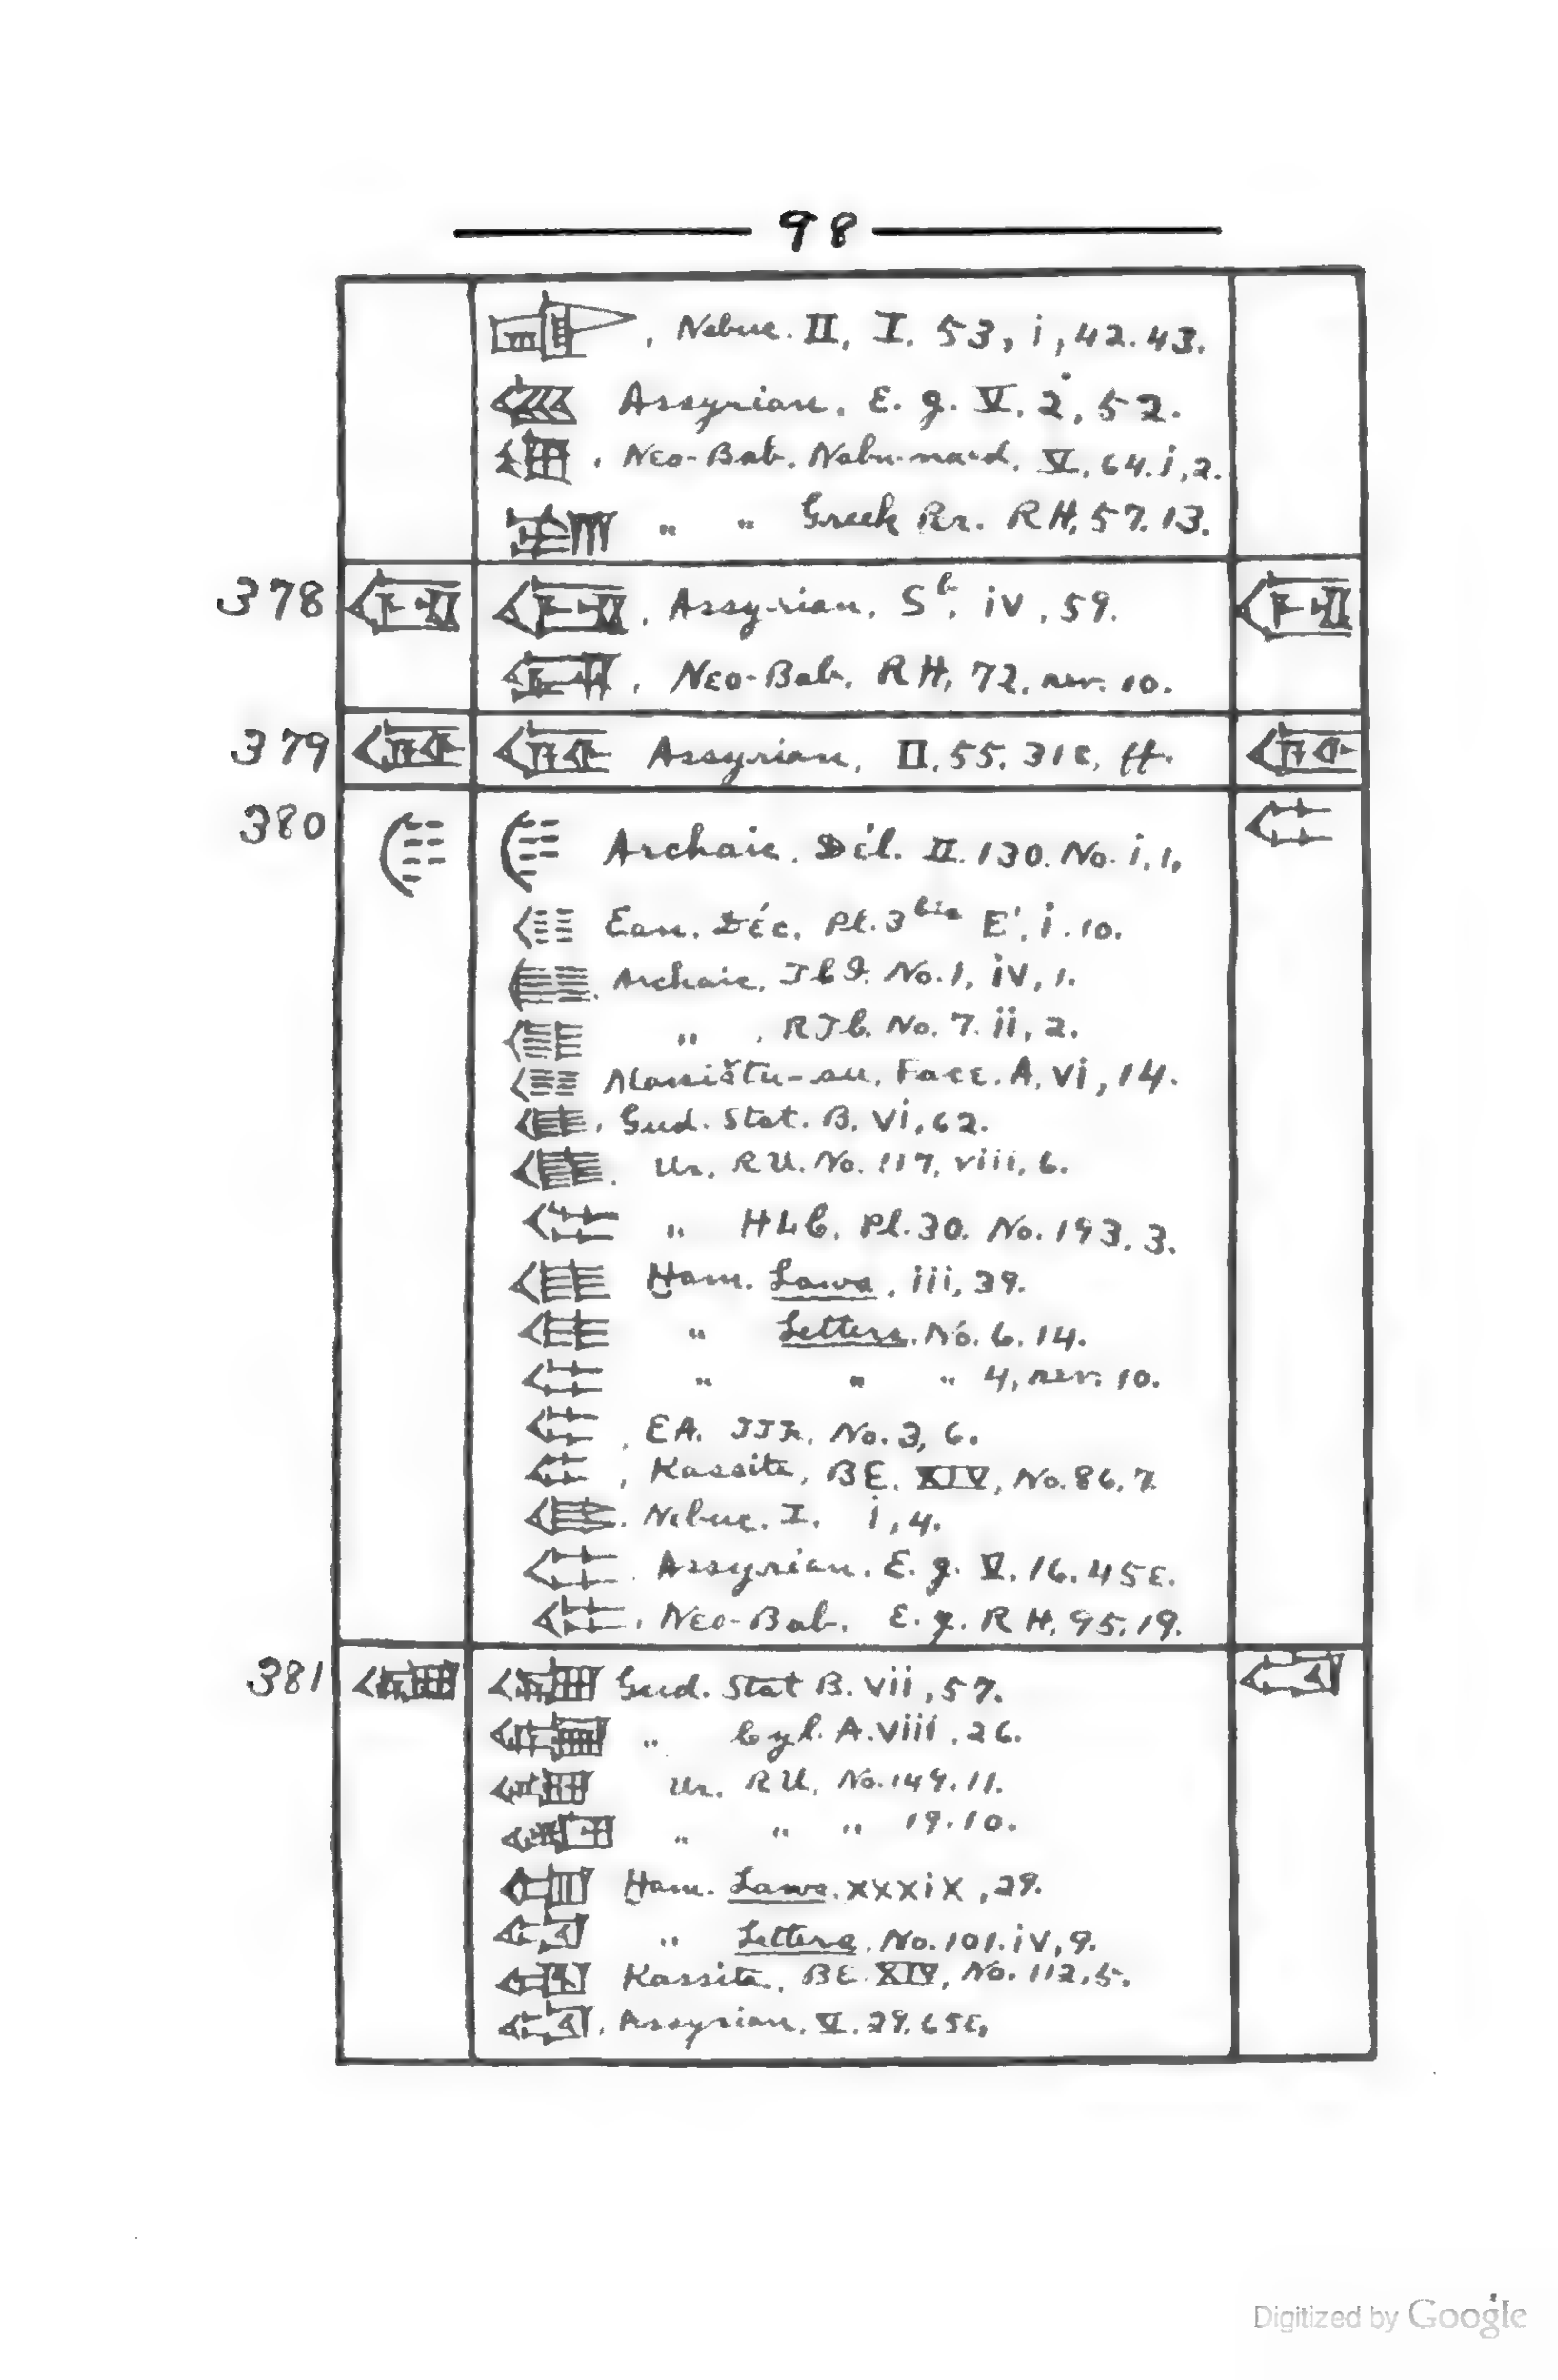 98
, Nebuc. II, I. 53, i, 42. 43.
Assyrian. E. g. V. 2, 52.
, Neo-Bab. Nabu-na-id. V, 64. i, 2.
" " Greek Pr. RH, 57. 13.
378 , Assyrian, Sb, iv, 59.
, Neo-Bab, RH, 72, rev. 10.
379 Assyrian, II. 55. 31c, ff.
380 Archaic. Dél. II. 130. No. i, 1,
Ean. Déc. Pl. 3bis E', i. 10.
Archaic, No. 1, iv, 1.
" , No. 7. ii, 2.
Maništu-su, Face. A, vi, 14.
, Gud. Stat. B. vi, 62.
. Ur. RU. No. 117, viii, 6.
" HLC. Pl. 30. No. 193. 3.
Ḫam. Laws, iii, 39.
" Letters. No. 6. 14.
" " " 4, rev. 10.
, EA. No. 3, 6.
, Kassite, BE. XIV, No. 86, 7.
. Nebuc. I. i, 4.
. Assyrian. E. g. V. 16. 45c.
, Neo-Bab. E. g. RH, 95, 19.
381 Gud. Stat B. vii, 57.
" Cyl. A. viii, 26.
Ur. RU, No. 149. 11.
" " " 19. 10.
Ḫam. Laws. xxxix, 29.
" Letters, No. 101. iv, 9.
Kassite, BE. XIV, No. 112, 5.
, Assyrian, V. 29, 65c,
Digitized by Google